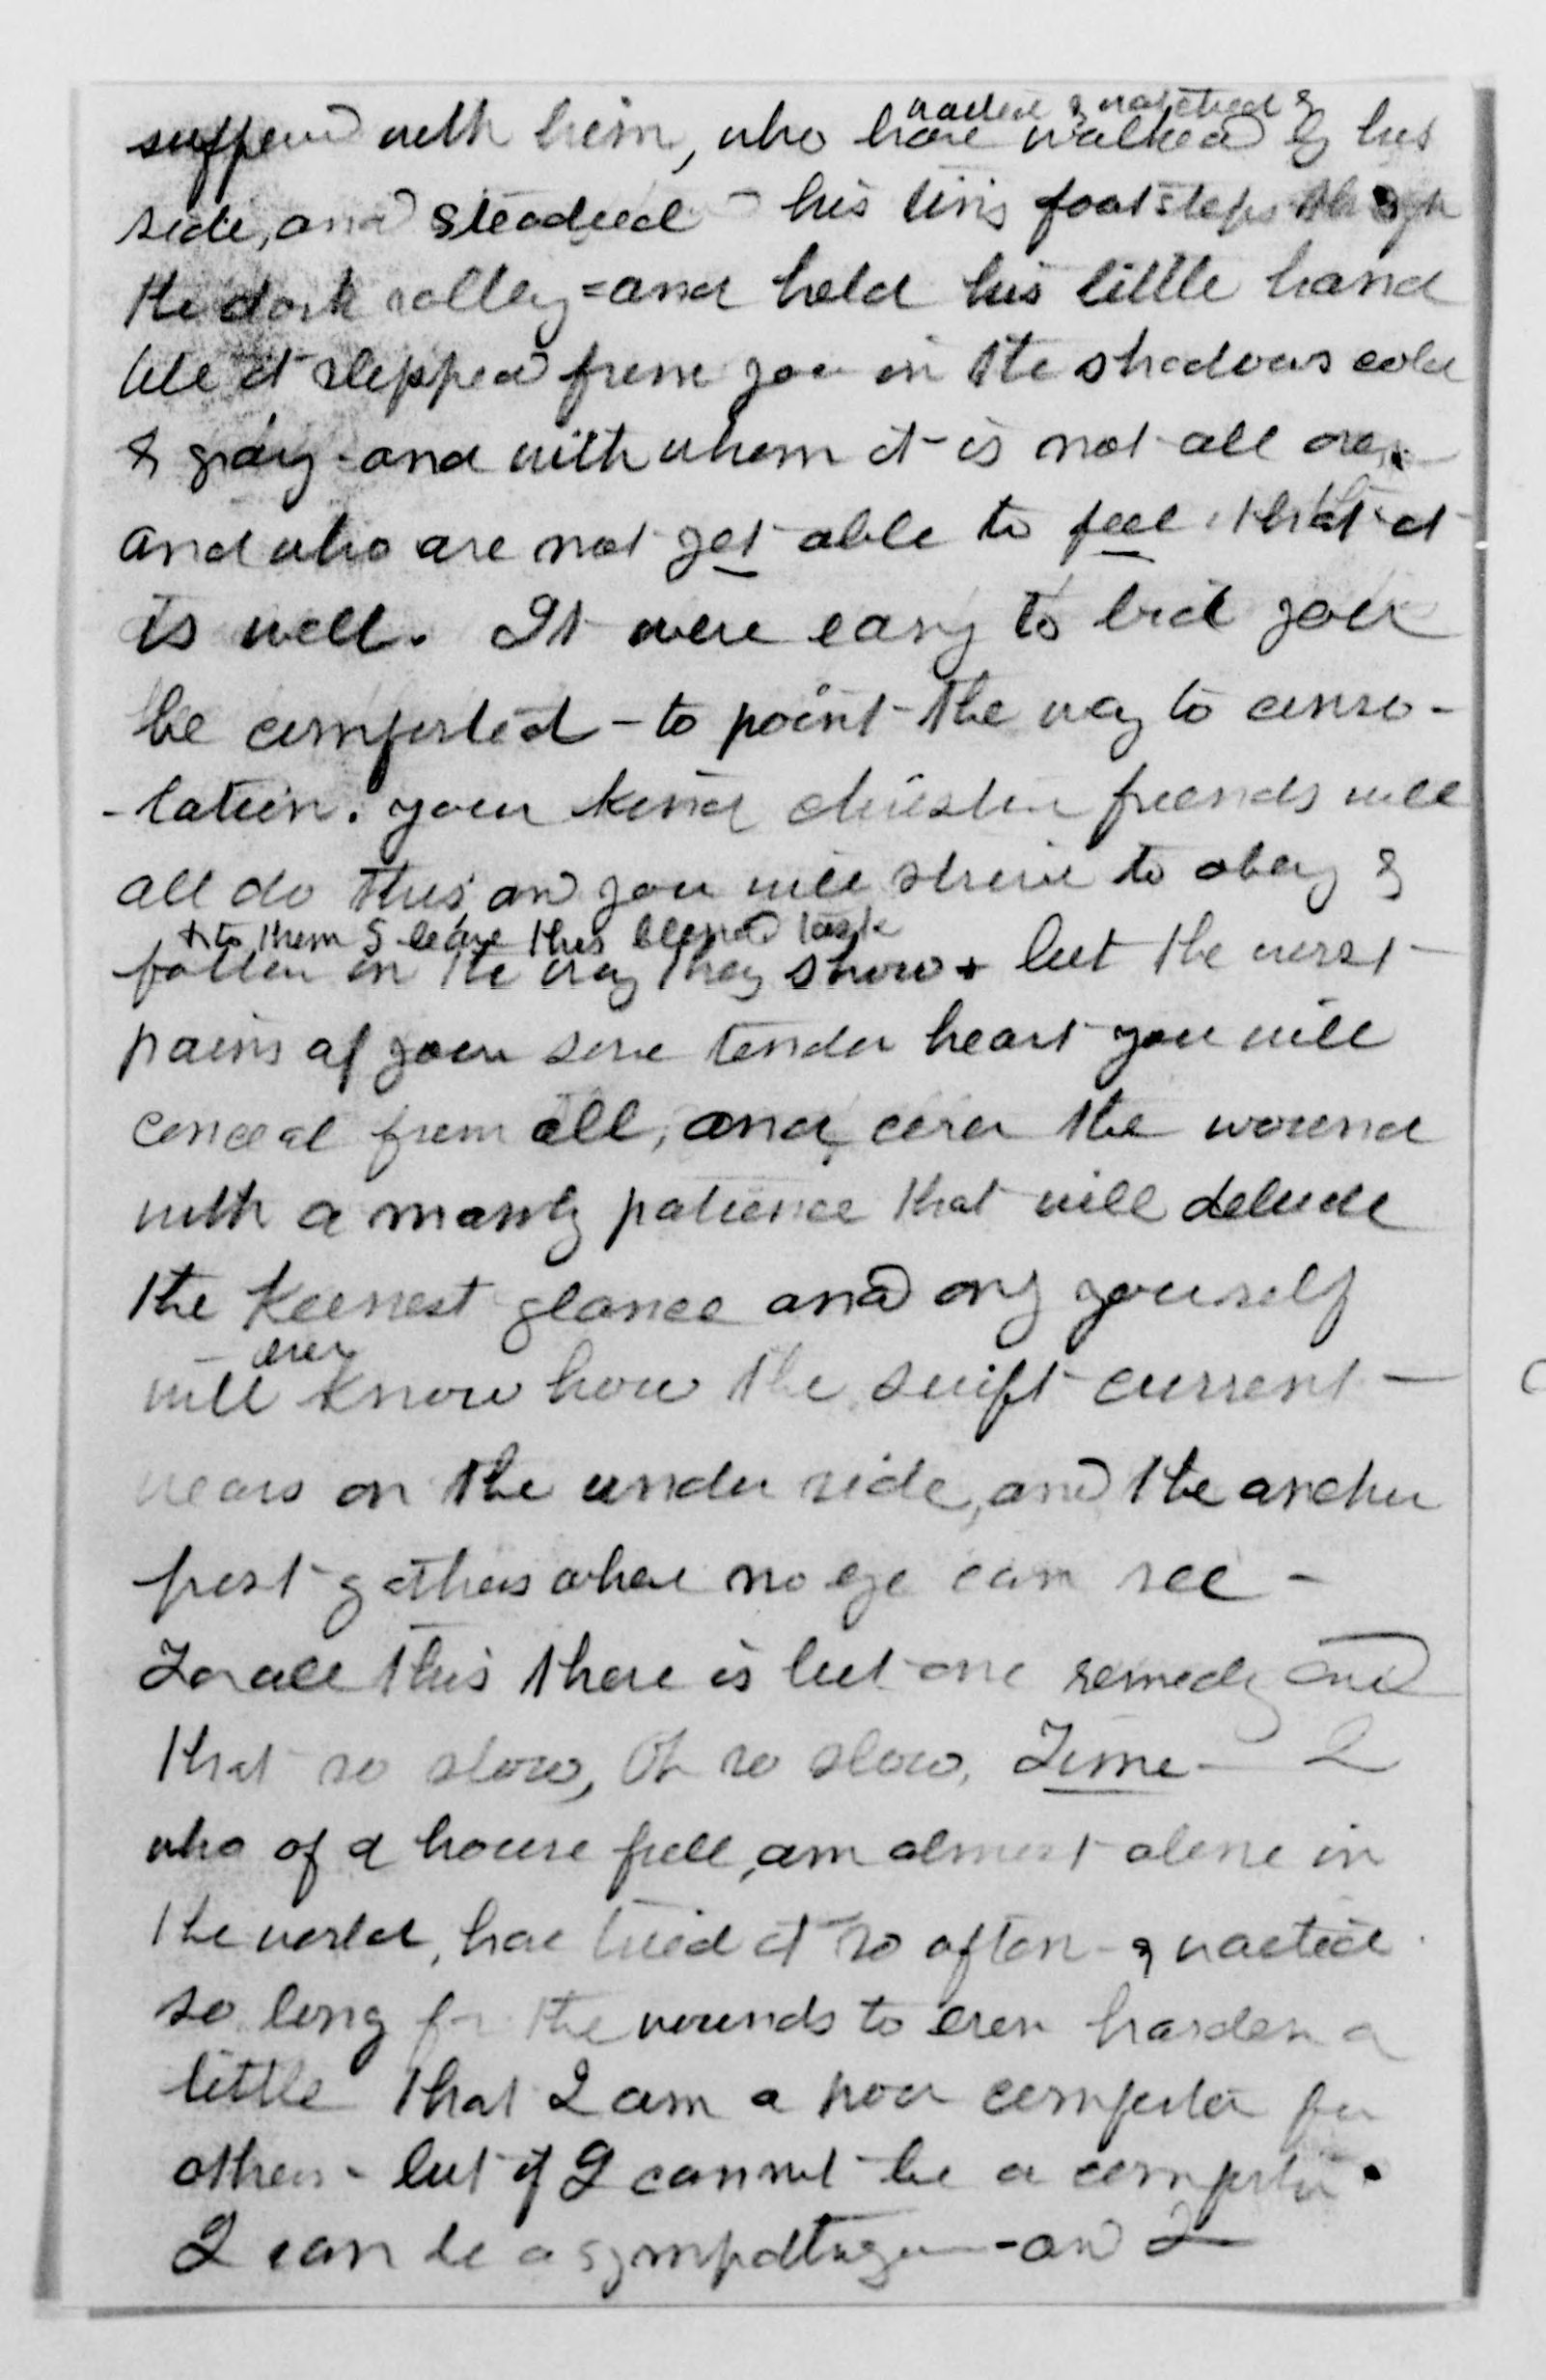 waited & watched &
suffered with him, who have walked by his
side, and steadied his tiny footsteps through
the dark valley = and held his little hand
till it slipped from you in the shadows cold
& gray - and with whom it is not all over
and who are not yet able to feel that it
is well. It were easy to bid you
be comforted - to point the way to conso-
-lation. your kind christian friends will
all do this, and you will strive to obey &
+ to them I leave this blessed task
follow in the way they show + but the worst
pains of your sore tender heart you will
conceal from all, and cover the wound
with a manly patience that will delude
the keenest glance and only yourself
ever
will know how the swift current -
wears on the under side, and the anchor
frost gathers where no eye can see -
For all this there is but one remedy and
that so slow, Oh so slow, Time - I
who of a house full, am almost alone in
the world, have tried it so often - & waited
so long for the wounds to even harden a
little that I am a poor comforter for
others - but if I cannot be a comforter.
I can be a sympathizer - and I